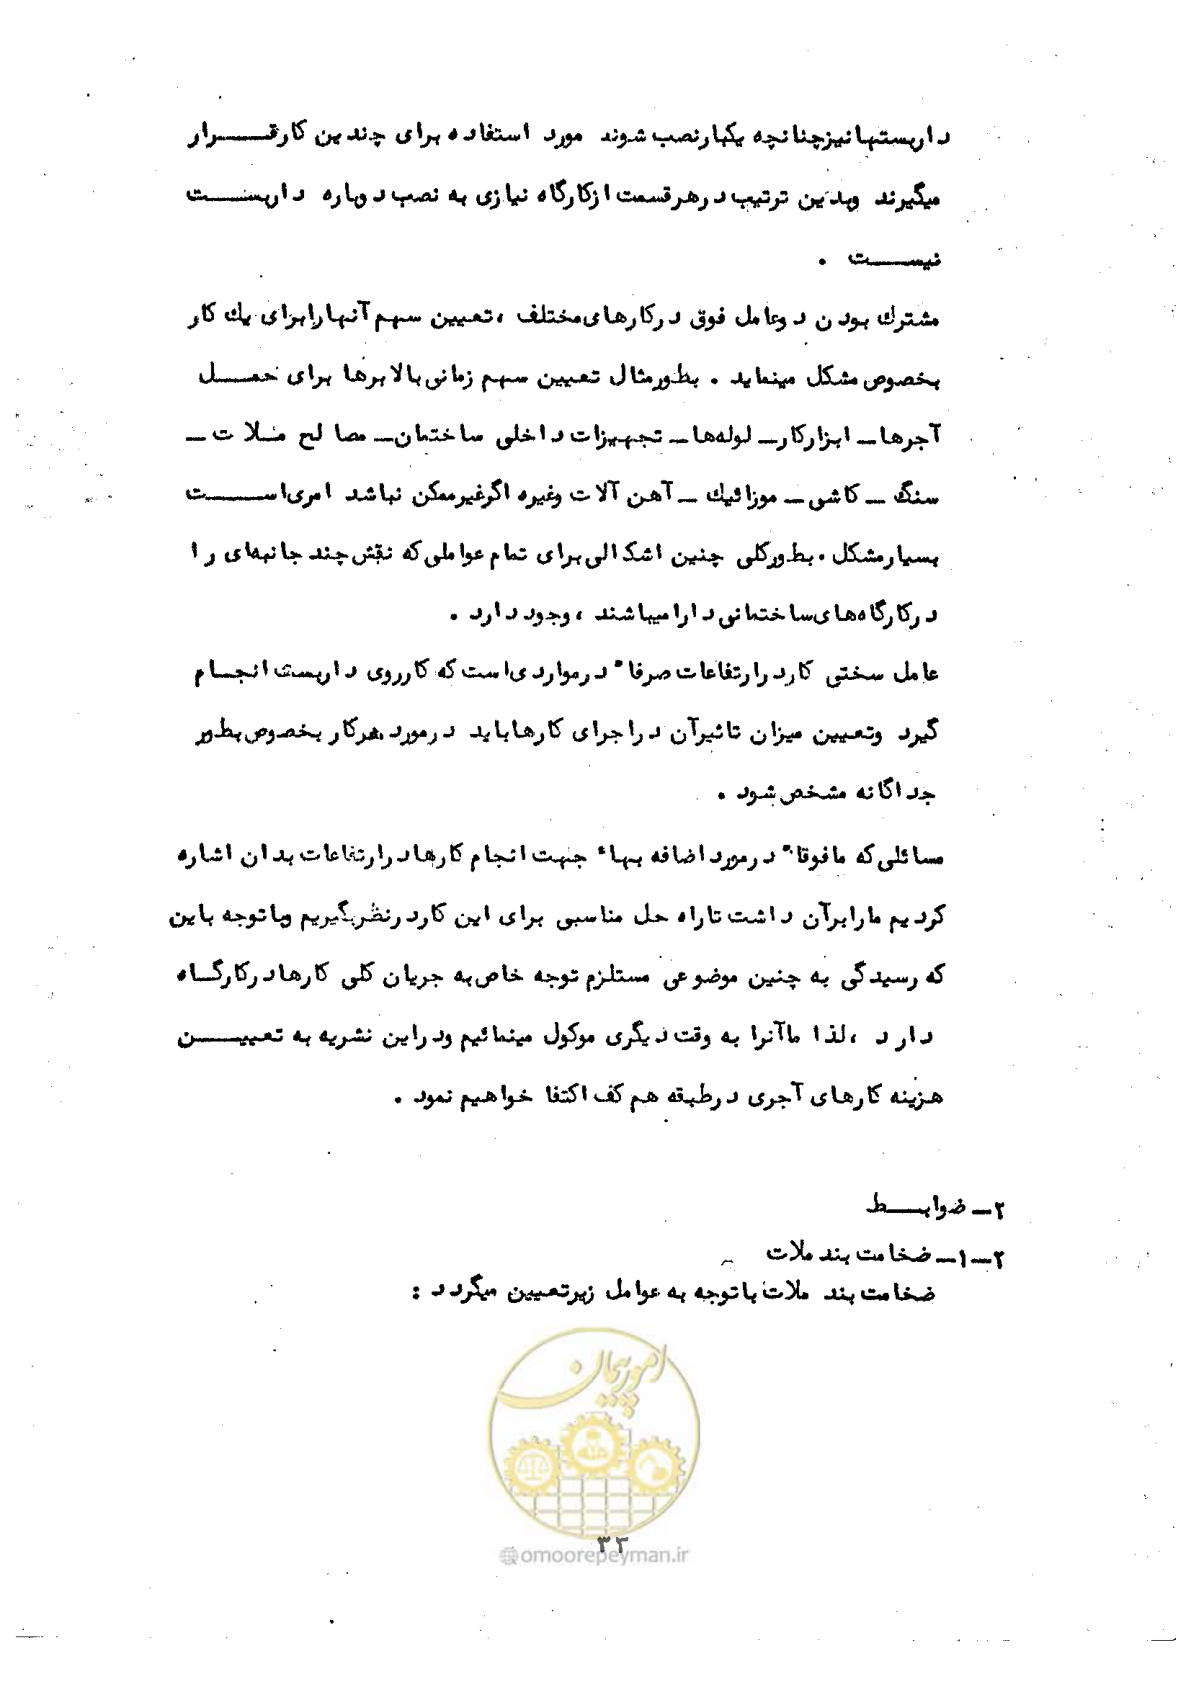 داربستها نیز چنانچه یکبار نصب شوند مورد استفاده برای چندین کار قرار
میگیرند وبدین ترتیب در هر قسمت از کارگاه نیازی به نصب دوباره داربست
نیست .
مشترك بودن دو عامل فوق در کارهای مختلف ، تعیین سهم آنها را برای یك کار
بخصوص مشکل مینماید . بطور مثال تعیین سهم زمانی بالابرها برای حمل
آجرها ـ ابزار کار ـ لوله‌ها ـ تجهیزات داخلی ساختمان ـ مصالح ملات ـ
سنگ ـ کاشی ـ موزائیك ـ آهن آلات وغیره اگر غیر ممکن نباشد امری است
بسیار مشکل . بطور کلی چنین اشکالی برای تمام عواملی که نقش چند جانبه‌ای را
در کارگاه‌های ساختمانی دارا میباشند ، وجود دارد .
عامل سختی کار در ارتفاعات صرفا" در مواردی است که کار روی داربست انجام
گیرد وتعیین میزان تاثیر آن در اجرای کارها باید در مورد هر کار بخصوص بطور
جداگانه مشخص شود .
مسائلی که ما فوقا" در مورد اضافه بهاء جهت انجام کارها در ارتفاعات بدان اشاره
کردیم ما را بر آن داشت تا راه حل مناسبی برای این کار در نظر بگیریم وبا توجه باین
که رسیدگی به چنین موضوعی مستلزم توجه خاص به جریان کلی کارها در کارگاه
دارد ، لذا ما آنرا به وقت دیگری موکول مینمائیم ودر این نشریه به تعیین
هزینه کارهای آجری در طبقه هم کف اکتفا خواهیم نمود .
۲ـ ضوابط
۲ـ۱ـ ضخامت بند ملات
ضخامت بند ملات با توجه به عوامل زیر تعیین میگردد :
امور پیمان
۳۲
@omoorepeyman.ir